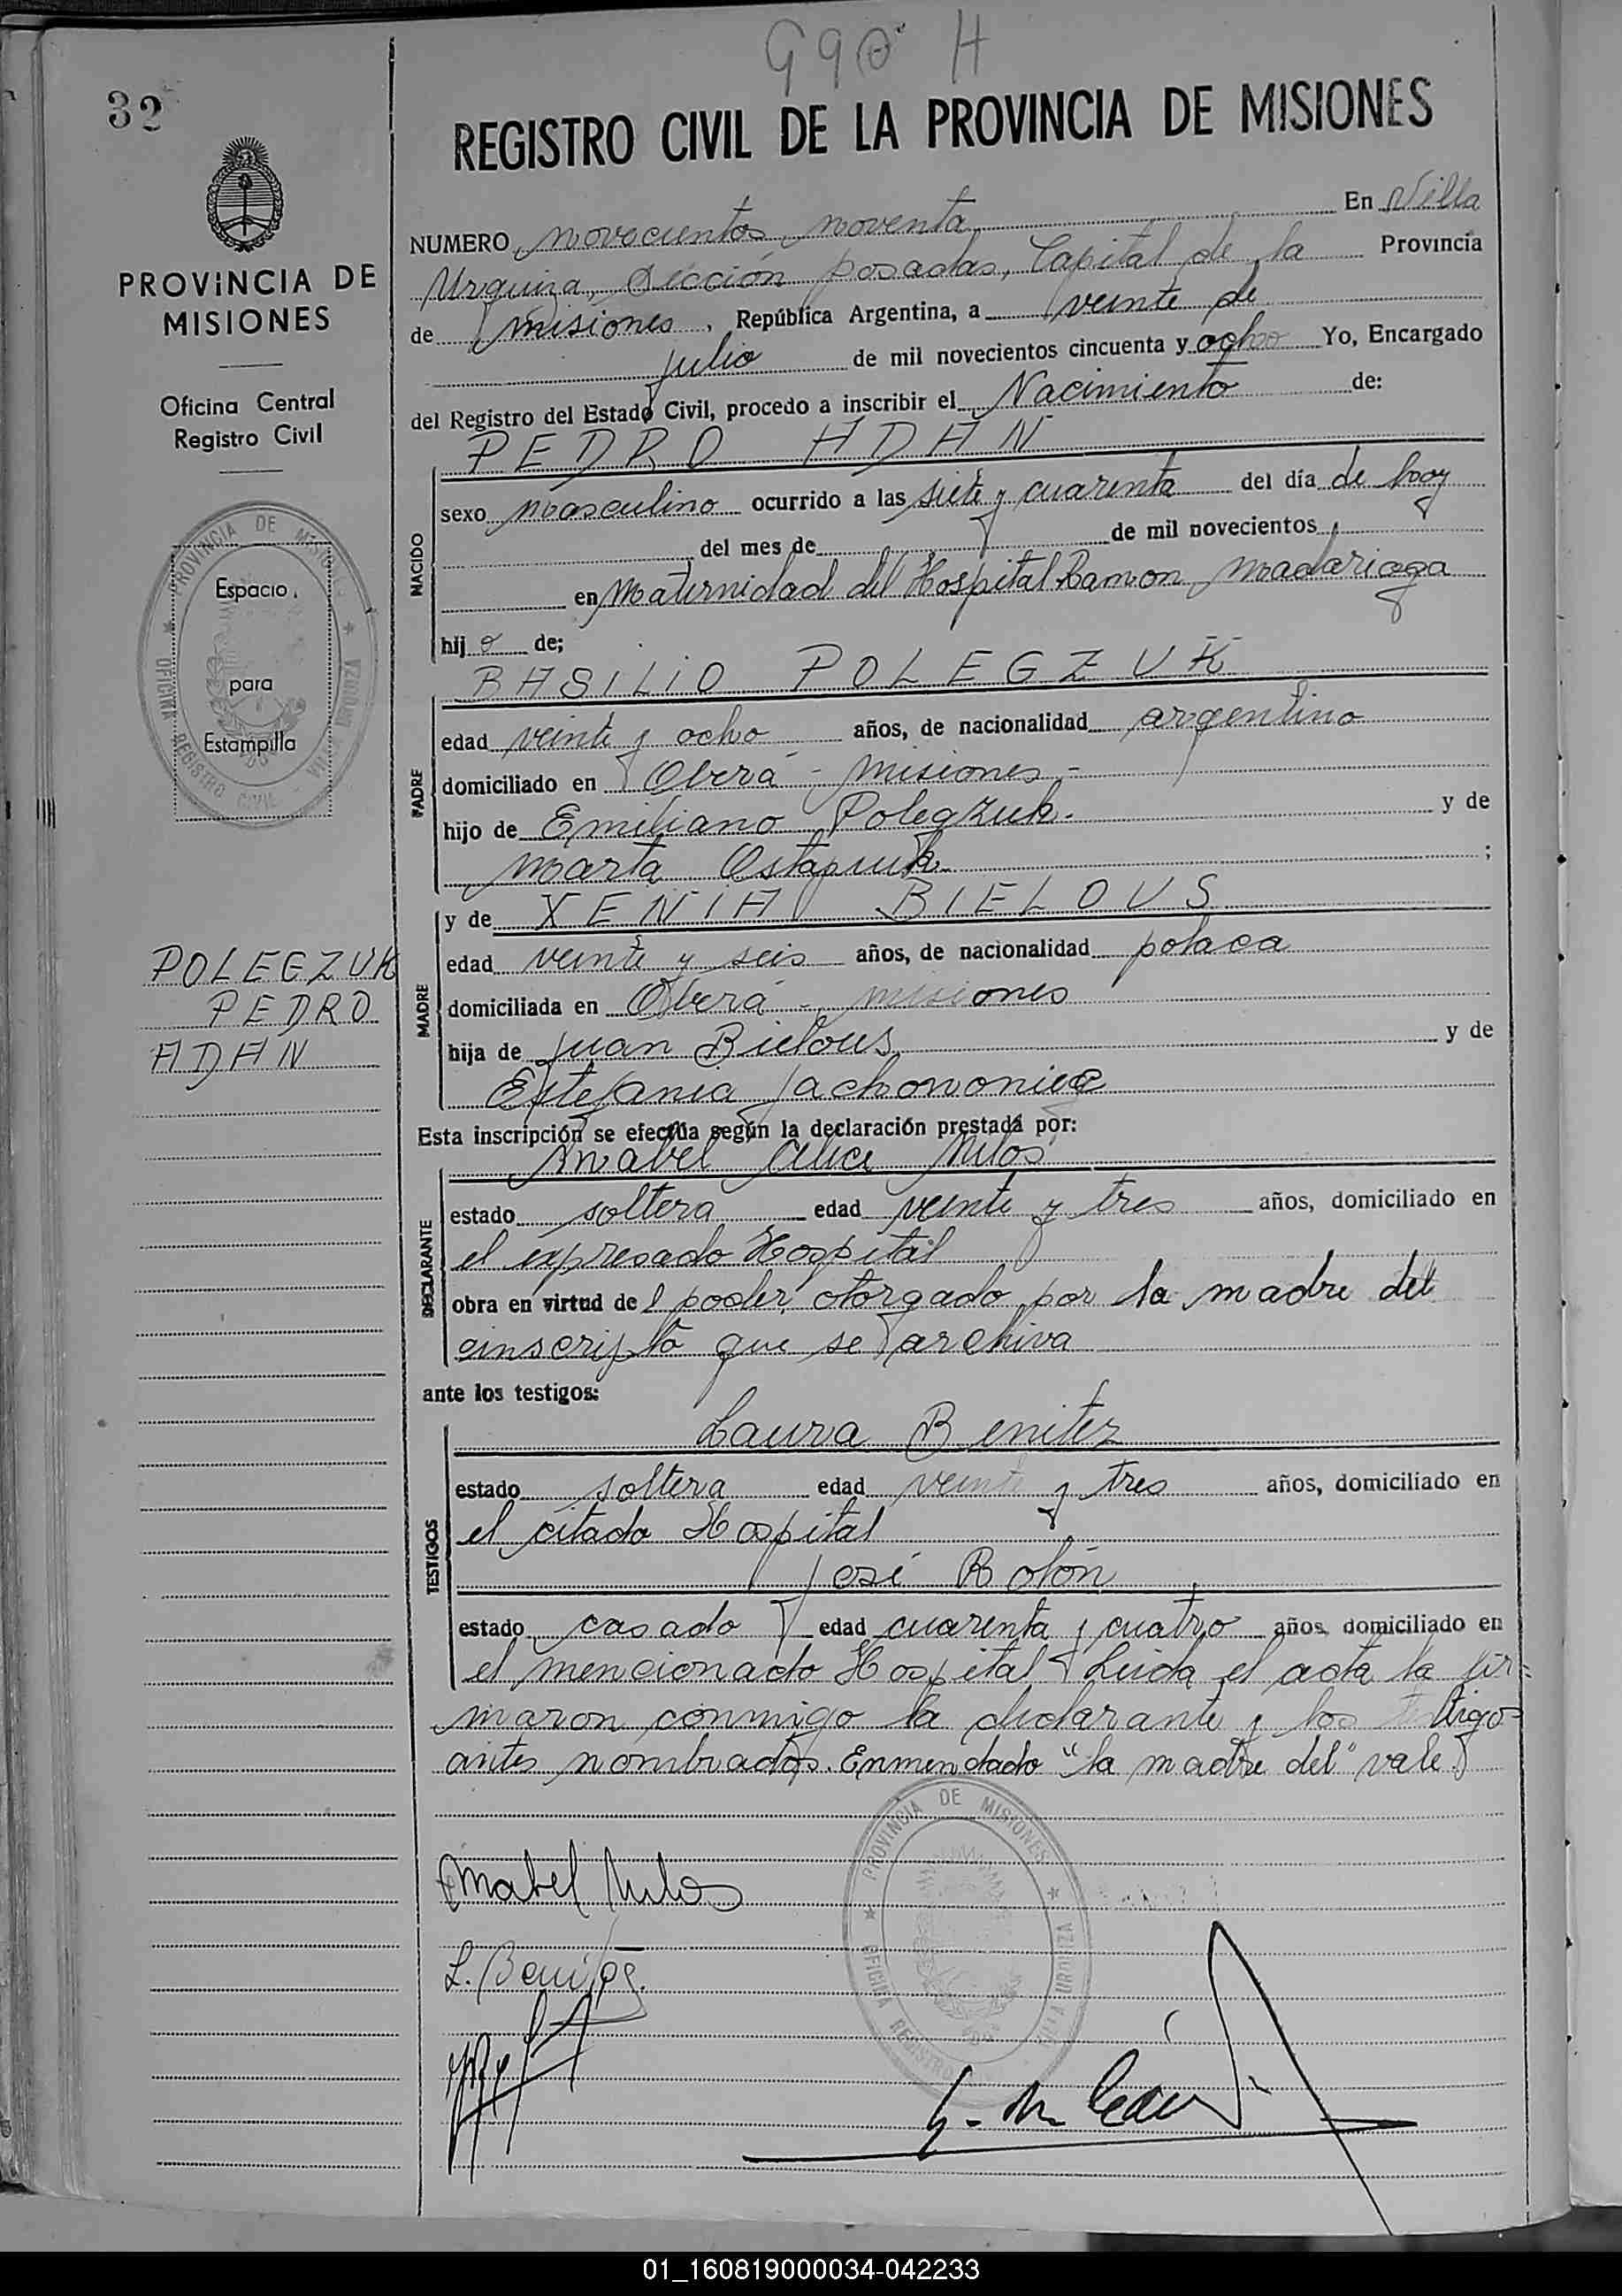 990 H
32
REGISTRO CIVIL DE LA PROVINCIA DE MISIONES
PROVINCIA DE
MISIONES
Oficina Central
Registro Civil
PROVINCIA DE MISIONES
OFICINA REGISTRO CIVIL VILLA URQUIZA
Espacio
para
Estampilla
POLEGZUK
PEDRO
ADAN
NUMERO novecientos noventa En Villa
Urquiza, Sección posadas, Capital de la Provincia
de misiones, República Argentina, a veinte de
julio de mil novecientos cincuenta y ocho Yo, Encargado
del Registro del Estado Civil, procedo a inscribir el Nacimiento de:
NACIDO
PEDRO ADAN
sexo masculino ocurrido a las siete y cuarenta del día de hoy
del mes de de mil novecientos
en Maternidad del Hospital Ramon Madariaga
hijo de;
PADRE
BASILIO POLEGZUK
edad veinte y ocho años, de nacionalidad argentino
domiciliado en Oberá - misiones -
hijo de Emiliano Polegzuk. y de
Marta Ostapiuk ;
MADRE
y de XENIA BIELOUS
edad veinte y seis años, de nacionalidad polaca
domiciliada en Oberá - misiones
hija de Juan Bielous y de
Estefania
Esta inscripción se efectúa según la declaración prestada por:
DECLARANTE
Mabel Alice
estado soltera edad veinte y tres años, domiciliado en
el expresado Hospital
obra en virtud del poder otorgado por la madre del
inscripto que se archiva
ante los testigos:
TESTIGOS
Laura Benitez
estado soltera edad veinte y tres años, domiciliado en
el citado Hospital
José Rolón
estado casado edad cuarenta y cuatro años, domiciliado en
el mencionado Hospital Leida el acta la fir=
maron conmigo la declarante y los testigos
antes nombrados. Enmendado "la madre del" vale
PROVINCIA DE MISIONES
OFICINA REGISTRO VILLA URQUIZA
Mabel
L. Benitez.
01_160819000034-042233